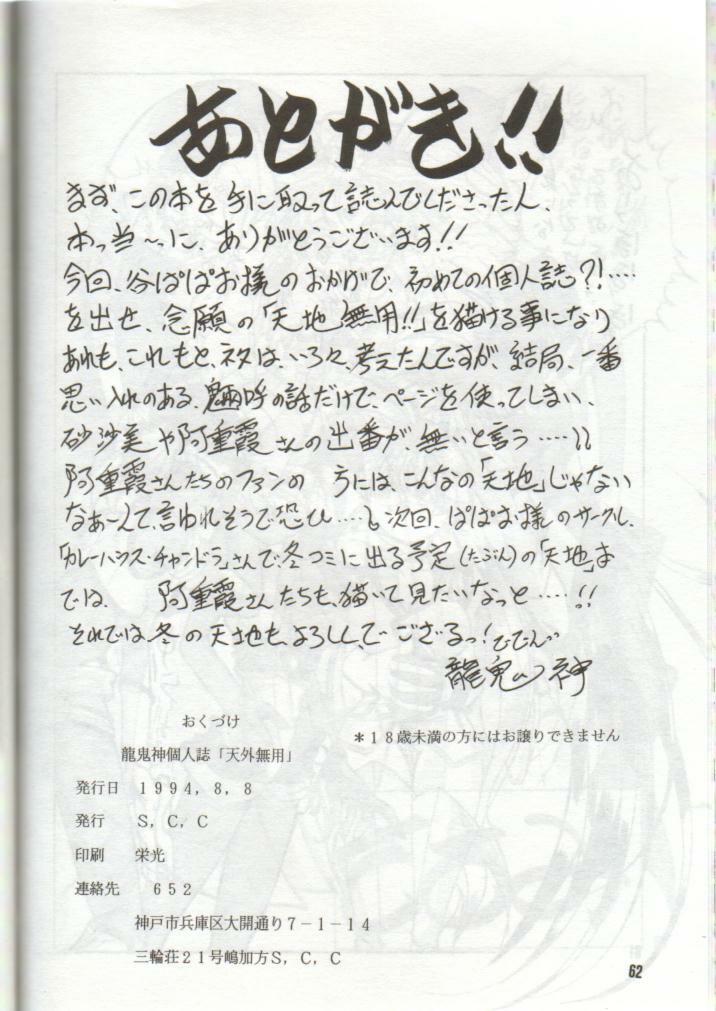 あとがき!!
まず、この本を手に取って読んでくださった人、
本っ当〜っに、ありがとうございます!!
今回、谷ぱぱお様のおかげで、初めての個人誌?!‥‥
を出せ、念願の「天地無用!!」を描ける事になり
あれも、これもと、ネタは、いろ々、考えたんですが、結局、一番
思い入れのある、魎呼の話だけで、ページを使ってしまい、
砂沙美や阿重霞さんの出番が、無いと言う‥‥
阿重霞さんたちのファンの 方には、こんなの「天地」じゃない
なぁーんて、言われそうで恐ひ‥‥ 次回、ぱぱお様のサークル、
「カレーハウス・チャンドラ」さんで、冬コミに出る予定(たぶん)の「天地」本
では、 阿重霞さんたちも、描いて見たいなっと‥‥!!
それでは冬の天地も、よろしく、でござるっ!
龍鬼 神
おくづけ
龍鬼神個人誌「天外無用」
*18歳未満の方にはお譲りできません
発行日 1994,8,8
発行 S,C,C
印刷 栄光
連絡先 652
神戸市兵庫区大開通り7-1-14
三輪荘21号嶋加方S,C,C
62